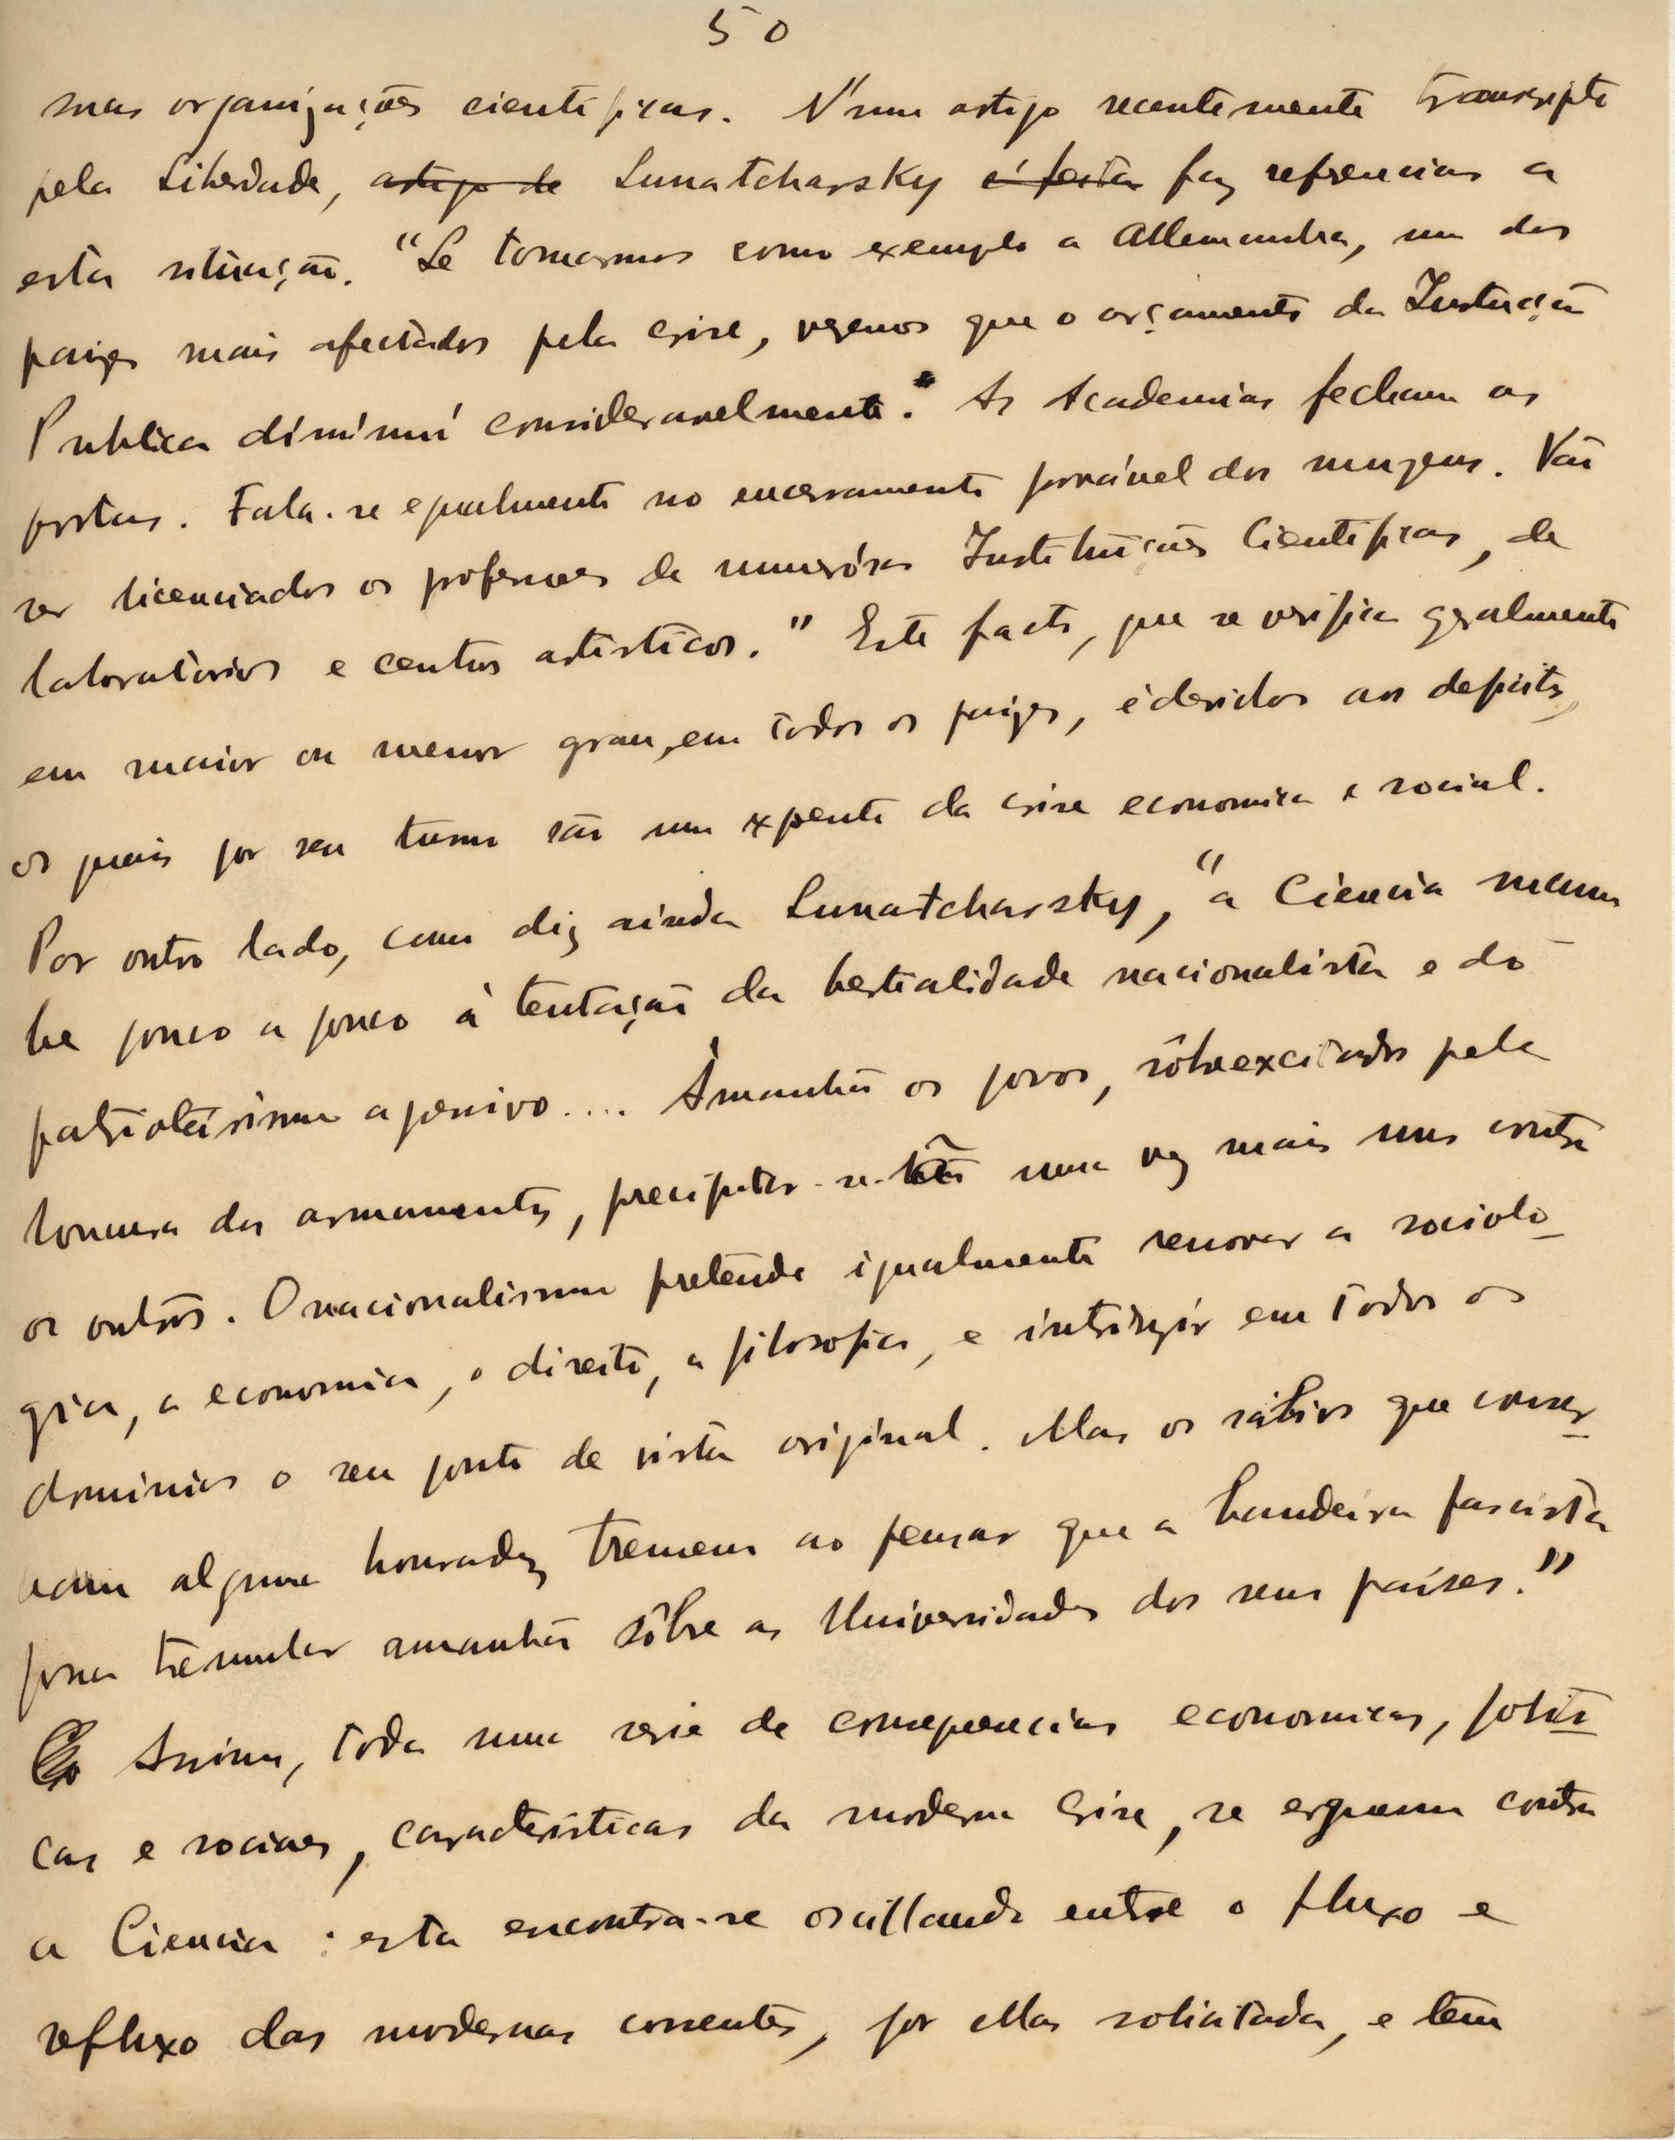 50
suas organizações cientificas. N'um artigo recentemente transcripto
pela Liberdade, artigo de Lunatcharsky é feita faz refrencias a
esta situação. "Se tomarmos como exemplo a Allemanha, um dos
paizes mais afectados pela crise, vemos que o orçamento da Instrução
Publica diminui consideravelmente. As Academias fecham as
portas. Fala-se egualmente no encerramento provável dos muzeus. Vão
ser licenciados os professores de numerósas Instituições Cientificas, de
laboratórios e centros artisticos." Este facto, que se verifica geralmente
em maior ou menor grau, em todos os paizes, é devido aos deficits,
os quais por seu turno são um expoente da crise economica e social.
Por outro lado, como diz ainda Lunatcharsky, "a Ciencia sucum
be pouco a pouco à tentação da bestialidade nacionalista e do
patriotarismo agressivo.... Àmanhã os povos, sôbreexcitados pela
loucura dos armamentos, precipitar-se-hão uma vez mais uns contra
os outros. O nacionalismo pretende igualmente renovar a sociolo-
gia, a economia, o direito, a filosofia, e introduzir em todos os
dominios o seu ponto de vista original. Mas os sábios que conser-
vam alguma honradez tremem ao pensar que a bandeira fascista
possa tremular amanhã sôbre as Universidades dos seus países."
Assim, toda uma serie de consequencias economicas, politi-
cas e sociaes, caracteristicas da moderna crise, se erguem contra
a Ciencia: esta encontra-se oscillando entre o fluxo e
refluxo das modernas correntes, por ellas solicitada, e tem